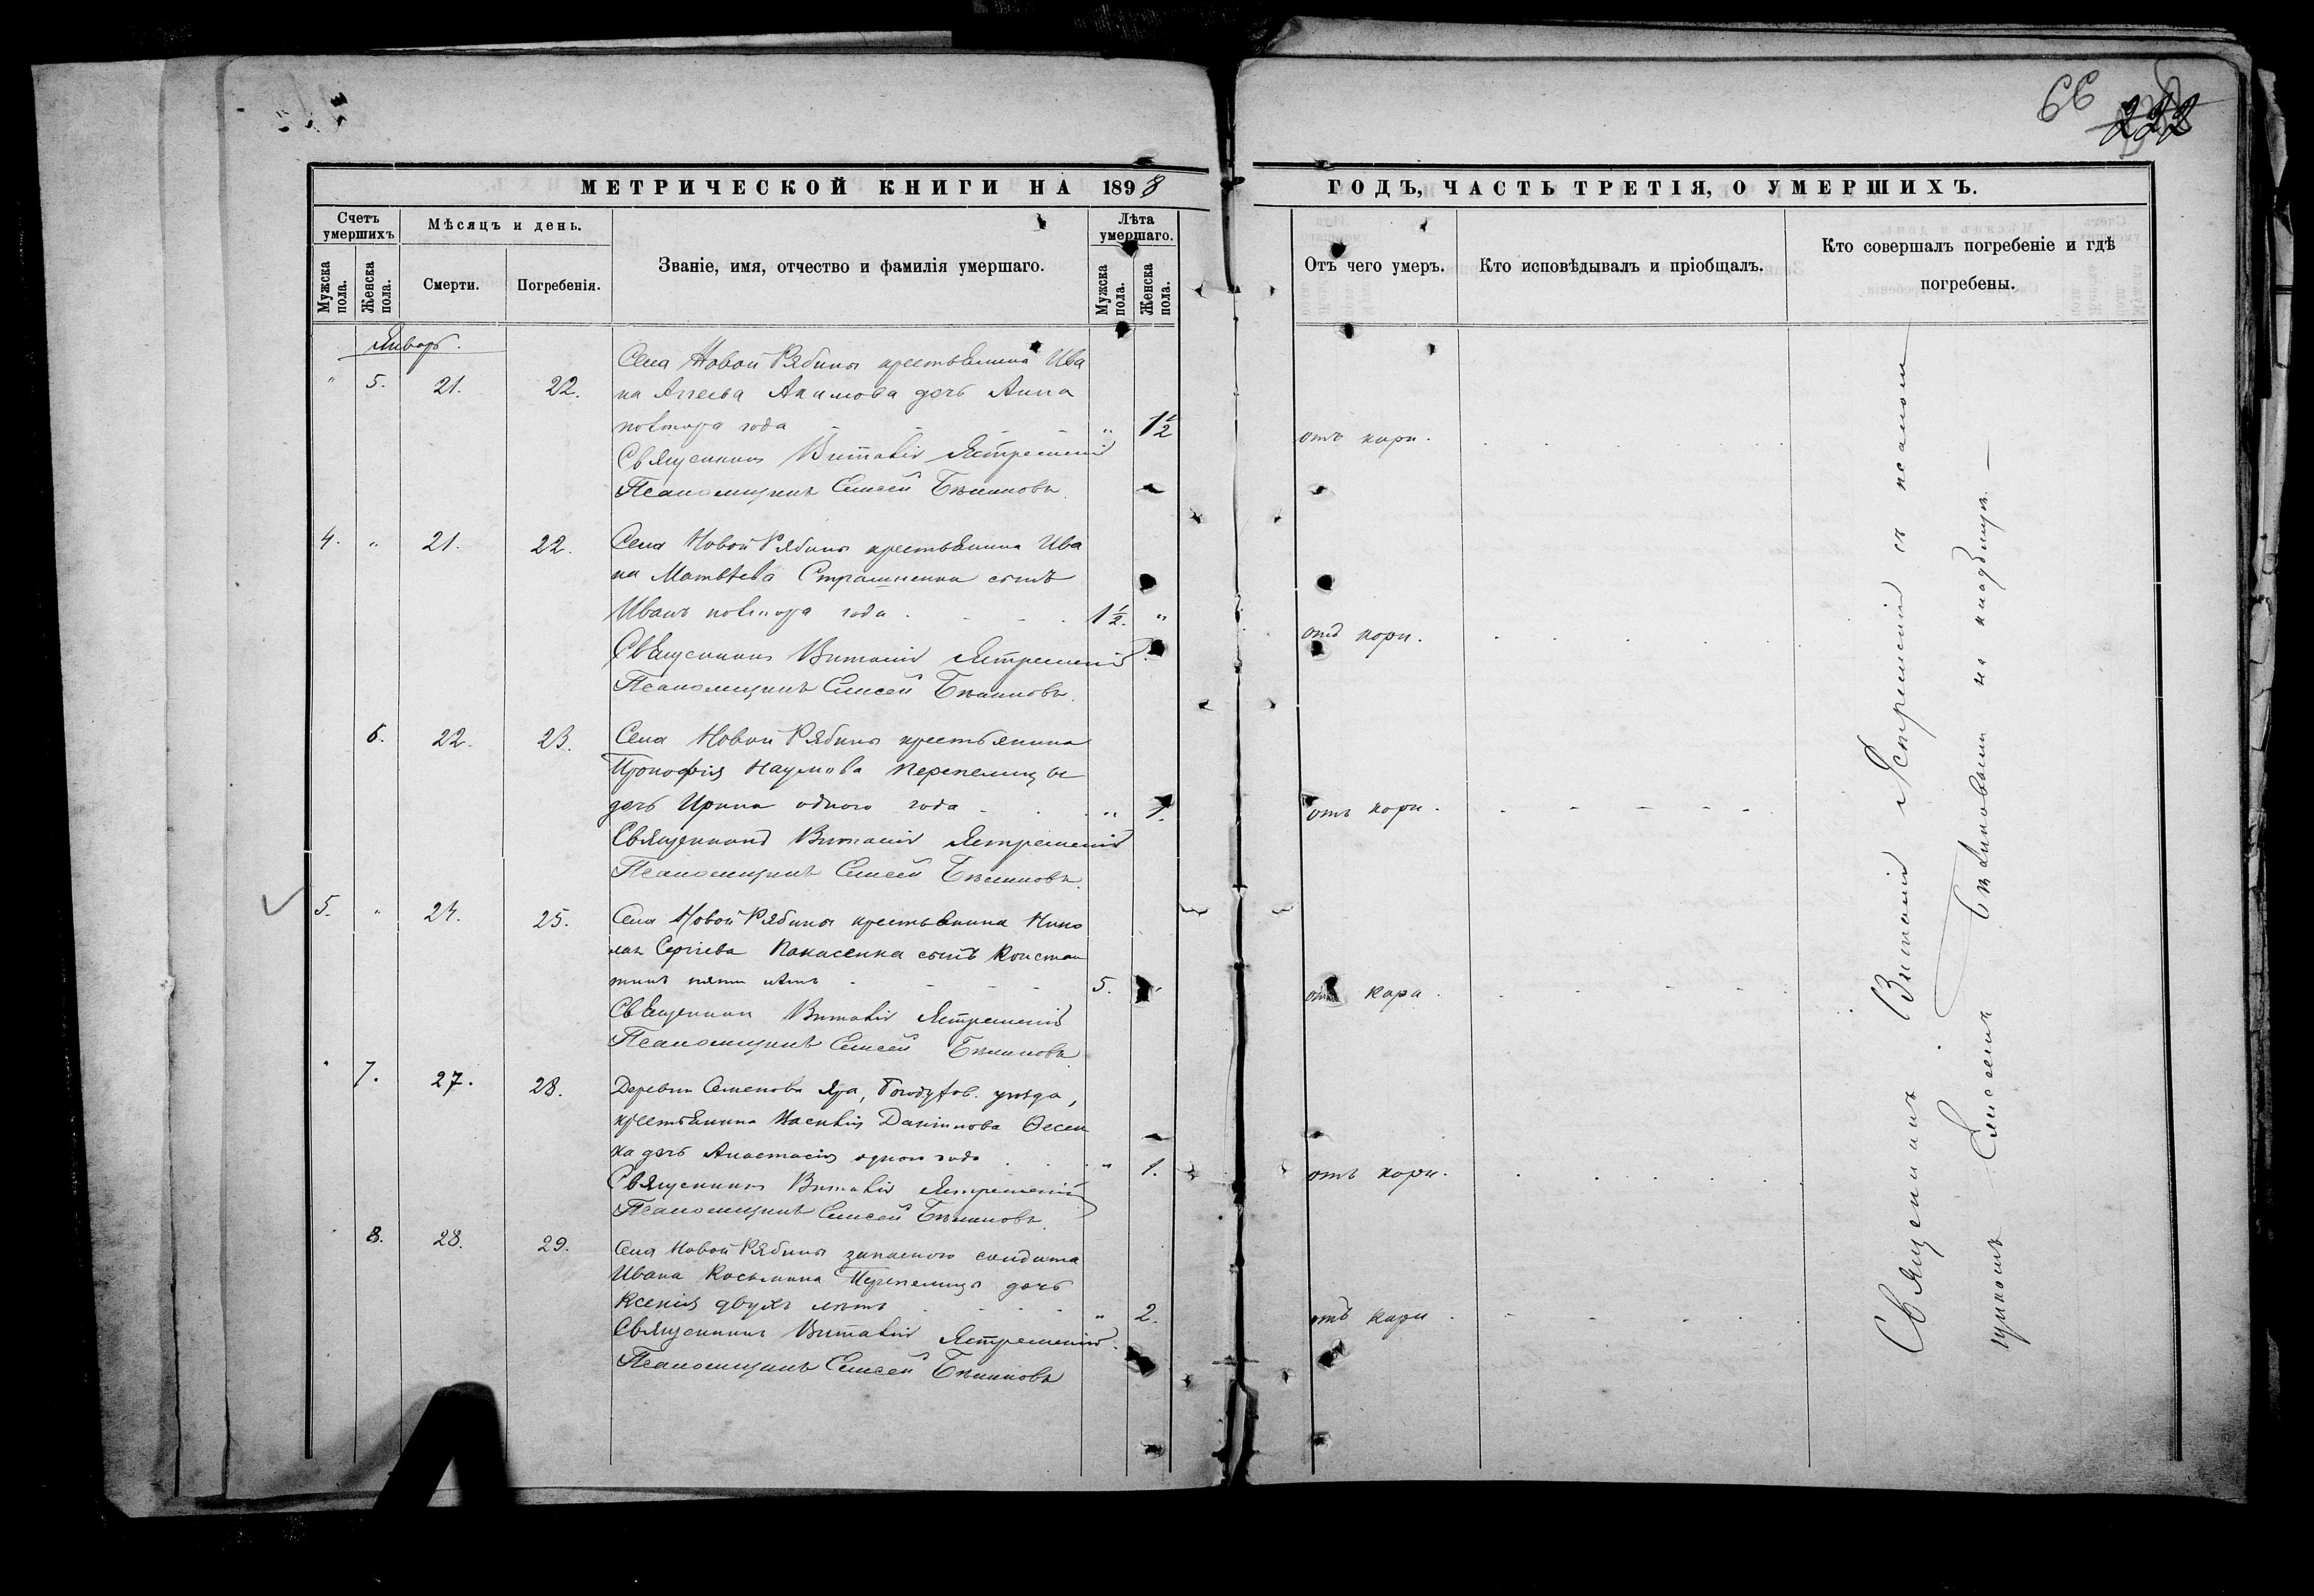 66
222
МЕТРИЧЕСКОЙ КНИГИ НА 1898
ГОДЪ, ЧАСТЬ ТРЕТІЯ, О УМЕРШИХЪ.
Счетъ умершихъ
Мужска пола.
Женска пола.
Мѣсяцъ и день.
Смерти.
Погребенія.
Званіе, имя, отчество и фамилія умершаго.
Лѣта умершаго.
Мужска пола.
Женска пола.
Отъ чего умеръ.
Кто исповѣдывалъ и пріобщалъ.
Кто совершалъ погребеніе и гдѣ
погребены.
Январь.
Села Новой Рябины крестьянина Ива
" 5. 21. 22. на Аггеева Акимова дочь Анна
полтора года " 1½ отъ кори.
Священникъ Виталій Ястремскій
Псаломщикъ Елисей Бѣликовъ.
4. " 21. 22. Села Новой Рябины крестьянина Ива
на Матвѣева Страшненка сынъ
Иванъ полтора года 1½. " отъ кори.
Священникъ Виталій Ястремскій
Псаломщикъ Елисей Бѣликовъ.
6. 22. 23. Села Новой Рябины крестьянина
Прокофія Наумова Перепелицы
дочь Ирина одного года " 1. отъ кори.
Священникъ Виталій Ястремскій
Псаломщикъ Елисей Бѣликовъ.
5. " 24. 25. Села Новой Рябины крестьянина Нико
лая Сергіева Панасенка сынъ Констан
тинъ пяти лѣтъ 5. отъ кора.
Священникъ Виталій Ястремскій
Псаломщикъ Елисей Бѣликовъ
" 7. 27. 28. Деревни Семенова Яра, Богодухов. уѣзда,
крестьянина Василія Даніилова Фесен
ка дочь Анастасія одного года " 1. отъ кори.
Священникъ Виталій Ястремскій
Псаломщикъ Елисей Бѣликовъ.
8. 28. 29. Села Новой Рябины запасного солдата
Ивана Косьмина Перепелицы дочь
Ксенія двухъ лѣтъ " 2. отъ кори
Священникъ Виталій Ястремскій.
Псаломщикъ Елисей Бѣликовъ
Священникъ Виталій Ястремскій съ псалом
щикомъ Елисеемъ Бѣликовымъ на кладбищѣ.